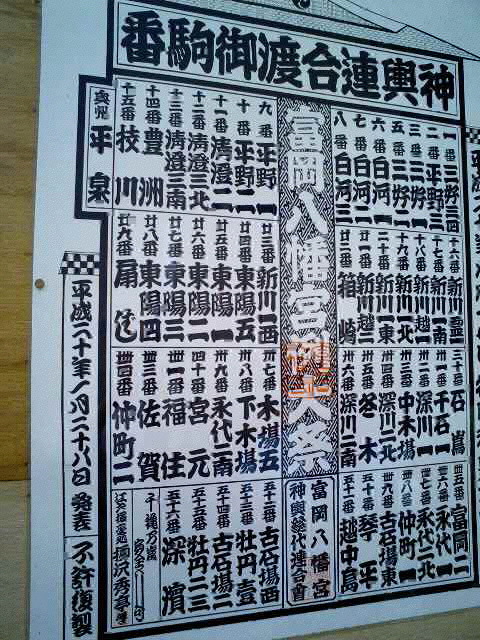 神輿連合渡御駒番
一番 三好三四
二番 平野三
三番 三好一
五番 三好二
六番 白河一
七番 白河二
八番 白河三
十六番 新川
十七番 新川一南
十八番 新川越一
十九番 新川一北
二十番 新川一東
廿一番 新川越二
廿二番 箱崎
三十番 石島
卅一番 千石一
卅二番 深川一
卅三番 中木場
卅四番 深川二北
卅五番 冬木
卅六番 深川二南
卌五番 富岡二
卌六番 永代一
卌七番 永代二北
卌八番 仲町一
卌九番 古石場東
五十番 琴平
五十一番 越中島
富岡八幡宮例大祭
富岡八幡宮
神輿総代連合會
九番 平野一
十番 平野二
十一番 清澄二
十二番 清澄三北
十三番 清澄三南
十四番 豊洲
十五番 枝川
奥州 平泉
廿三番 新川一西
廿四番 東陽五
廿五番 東陽一
廿六番 東陽二
廿七番 東陽三
廿八番 東陽四
廿九番 扇ばし
卅七番 木場五
卅八番 下木場
卅九番 永代二南
四十番 宮元
卌一番 福住
卌三番 佐賀
卌四番 仲町二
五十二番 古石場西
五十三番 牡丹壹
五十四番 古石場二
五十五番 牡丹二三
五十六番 深濱
平成二十年 月二十八日 発表 不許復製